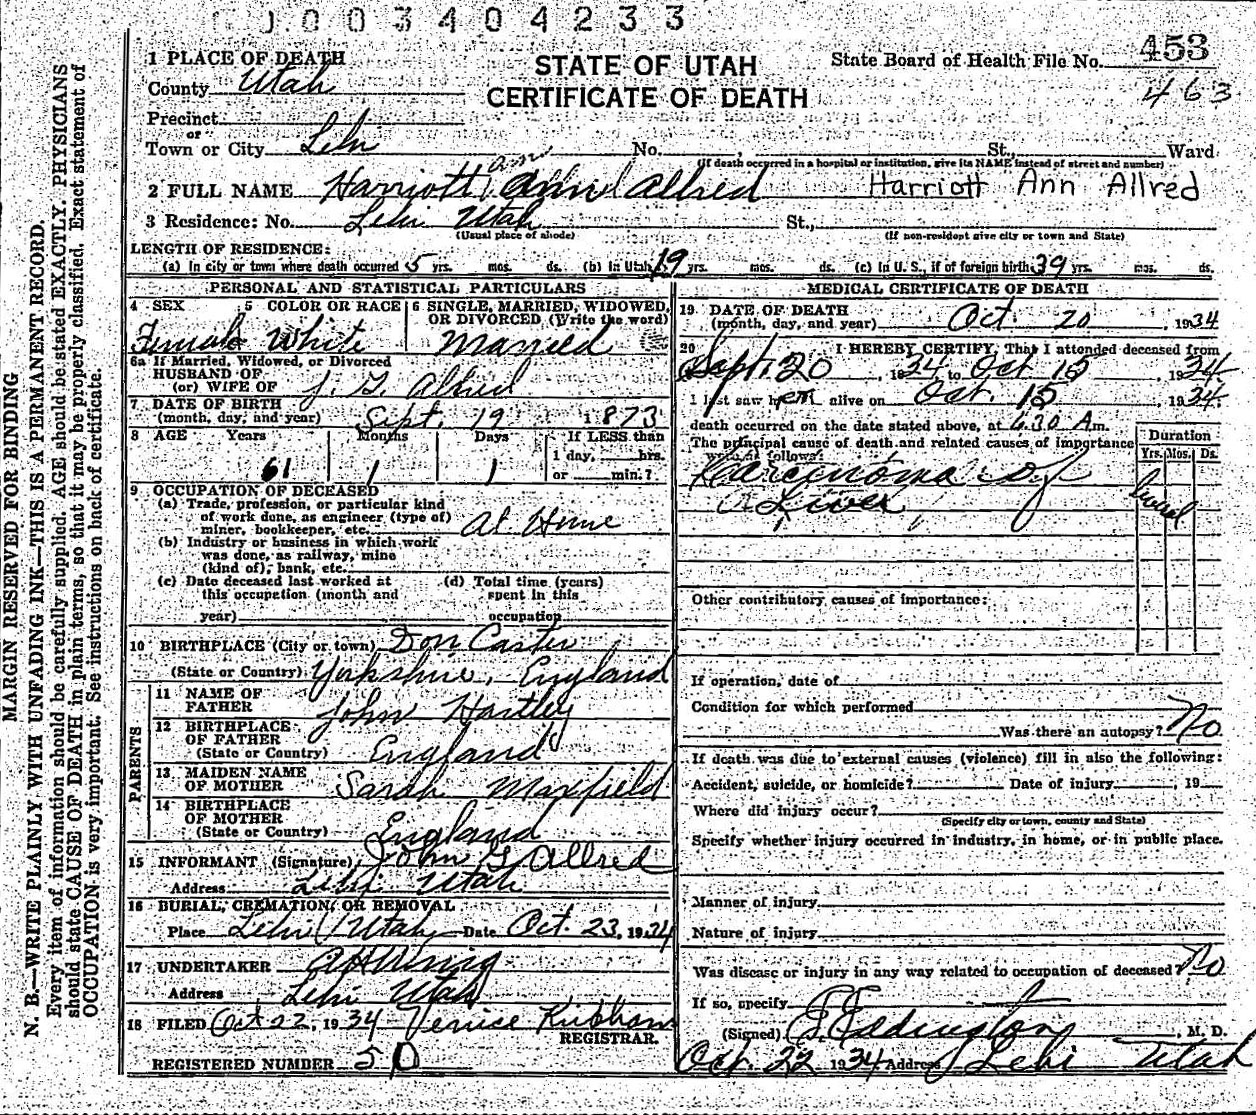 003404233
MARGIN RESERVED FOR BINDING
N. B.—WRITE PLAINLY WITH UNFADING INK—THIS IS A PERMANENT RECORD.
Every item of information should be carefully supplied. AGE should be stated EXACTLY. PHYSICIANS
should state CAUSE OF DEATH in plain terms, so that it may be properly classified. Exact statement of
OCCUPATION is very important. See instructions on back of certificate.
STATE OF UTAH
CERTIFICATE OF DEATH
State Board of Health File No. 453
463
1 PLACE OF DEATH
County Utah
Precinct
or
Town or City Lehi No. , St., Ward
(If death occurred in a hospital or institution, give its NAME instead of street and number)
2 FULL NAME Harriott Ann Allred Harriott Ann Allred
3 Residence: No. Lehi Utah St.,
(Usual place of abode) (If non-resident give city or town and State)
LENGTH OF RESIDENCE:
(a) In city or town where death occurred 5 yrs. mos. ds. (b) In Utah 19 yrs. mos. ds. (c) In U. S., if of foreign birth 39 yrs. mos. ds.
PERSONAL AND STATISTICAL PARTICULARS
4 SEX 5 COLOR OR RACE 6 SINGLE, MARRIED, WIDOWED,
OR DIVORCED (Write the word)
Female White Married
6a If Married, Widowed, or Divorced
HUSBAND OF
(or) WIFE OF J. G. Allred
7 DATE OF BIRTH
(month, day, and year) Sept. 19 1873
8 AGE Years Months Days If LESS than
1 day, hrs.
61 1 1 or min.?
9 OCCUPATION OF DECEASED
(a) Trade, profession, or particular kind
of work done, as engineer (type of)
miner, bookkeeper, etc. At Home
(b) Industry or business in which work
was done, as railway, mine
(kind of), bank, etc.
(c) Date deceased last worked at (d) Total time (years)
this occupation (month and spent in this
year) occupation
10 BIRTHPLACE (City or town) Don Caster
(State or Country) Yorkshire, England
PARENTS
11 NAME OF
FATHER John Hartley
12 BIRTHPLACE
OF FATHER
(State or Country) England
13 MAIDEN NAME
OF MOTHER Sarah Maxfield
14 BIRTHPLACE
OF MOTHER
(State or Country) England
15 INFORMANT (Signature) John G Allred
Address Lehi Utah
16 BURIAL, CREMATION, OR REMOVAL
Place Lehi Utah Date Oct. 23, 1934
17 UNDERTAKER
Address Lehi Utah
18 FILED Oct 22, 1934 Venice
REGISTRAR.
REGISTERED NUMBER 50
MEDICAL CERTIFICATE OF DEATH
19 DATE OF DEATH
(month, day, and year) Oct. 20, 1934
20 I HEREBY CERTIFY, That I attended deceased from
Sept. 20, 1934 to Oct 15 1934
I last saw her alive on Oct. 15 1934.
death occurred on the date stated above, at 6.30 A m.
The principal cause of death and related causes of importance
were as follows:
Duration
Yrs. Mos. Ds.
Carcinoma of
Liver
Other contributory causes of importance:
If operation, date of
Condition for which performed
Was there an autopsy? No
If death was due to external causes (violence) fill in also the following:
Accident, suicide, or homicide? Date of injury , 19
Where did injury occur?
(Specify city or town, county and State)
Specify whether injury occurred in industry, in home, or in public place.
Manner of injury
Nature of injury
Was disease or injury in any way related to occupation of deceased No
If so, specify
(Signed) Eddington, M. D.
Oct. 22 1934 Address Lehi Utah